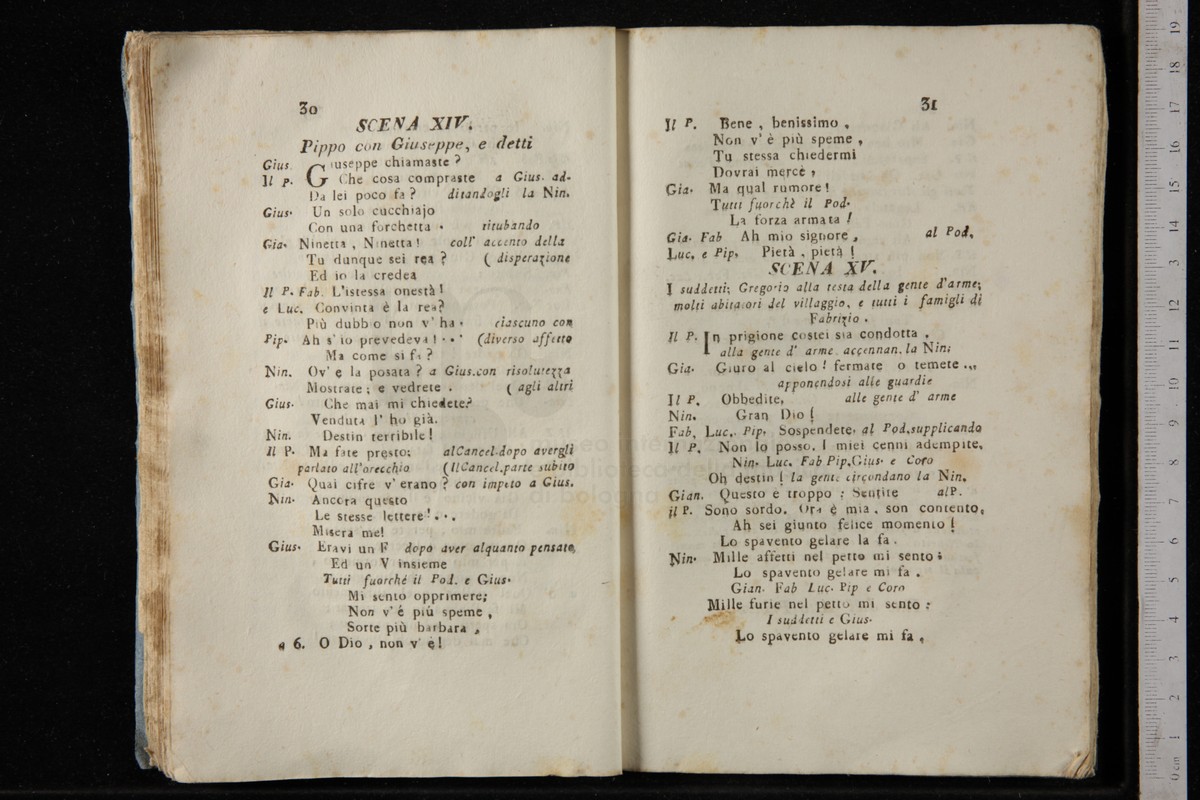 30
SCENA XIV.
Pippo con Giuseppe, e detti
Gius. Giuseppe chiamaste?
Il P. Che cosa compraste a Gius. ad-
Da lei poco fa? ditandogli la Nin.
Gius. Un solo cucchiajo
Con una forchetta. ritubando
Gia. Ninetta, Ninetta! coll' accento della
Tu dunque sei rea? ( disperazione
Ed io la credea
Il P. Fab. L'istessa onestà!
e Luc. Convinta è la rea?
Più dubbio non v' ha. ciascuno con
Pip. Ah s' io prevedeva!... (diverso affetto
Ma come si fa?
Nin. Ov' e la posata? a Gius.con risolutezza
Mostrate; e vedrete. ( agli altri
Gius. Che mai mi chiedete?
Venduta l' ho già.
Nin. Destin terribile!
Il P. Ma fate presto; alCancel.dopo avergli
parlato all'orecchio (IlCancel.parte subito
Gia. Quai cifre v' erano? con impeto a Gius.
Nin. Ancora questo
Le stesse lettere!...
Misera me!
Gius. Eravi un F dopo aver alquanto pensato,
Ed un V insieme
Tutti fuorché il Pod. e Gius.
Mi sento opprimere;
Non v' é più speme,
Sorte più barbara,
a 6. O Dio, non v' è!
31
Il P. Bene, benissimo,
Non v' è più speme,
Tu stessa chiedermi
Dovrai mercè,
Gia. Ma qual rumore!
Tutti fuorchè il Pod.
La forza armata!
Gia. Fab Ah mio signore, al Pod,
Luc. e Pip. Pietà, pietà!
SCENA XV.
I suddetti; Gregorio alla testa della gente d'arme;
molti abitatori del villaggio, e tutti i famigli di
Fabrizio.
Il P. In prigione costei sia condotta,
alla gente d' arme, accennan. la Nin;
Gia. Giuro al cielo! fermate o temete...
apponendosi alle guardie
Il P. Obbedite, alle gente d' arme
Nin. Gran Dio!
Fab, Luc,. Pip. Sospendete. al Pod.supplicando
Il P. Non lo posso. I miei cenni adempite,
Nin. Luc. Fab Pip.Gius. e Coro
Oh destin! la gente circondano la Nin.
Gian. Questo è troppo: Sentite alP.
il P. Sono sordo. Ora è mia, son contento,
Ah sei giunto felice momento!
Lo spavento gelare la fa.
Nin. Mille affetti nel petto mi sento:
Lo spavento gelare mi fa.
Gian. Fab Luc. Pip e Coro
Mille furie nel petto mi sento:
I suddetti e Gius.
Lo spavento gelare mi fa,